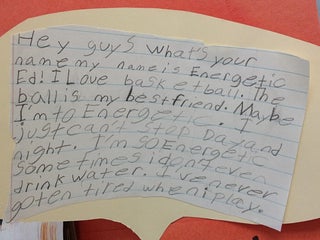 Hey guys what's your
name my name is Energetic
Ed! I Love basketball. The
ball is my bestfriend. Maybe
I'm to Energetic. I
just can't stop Day and
night. I'm so Energetic
Some times i don't even
drink water. I've never
goten tired when i play.